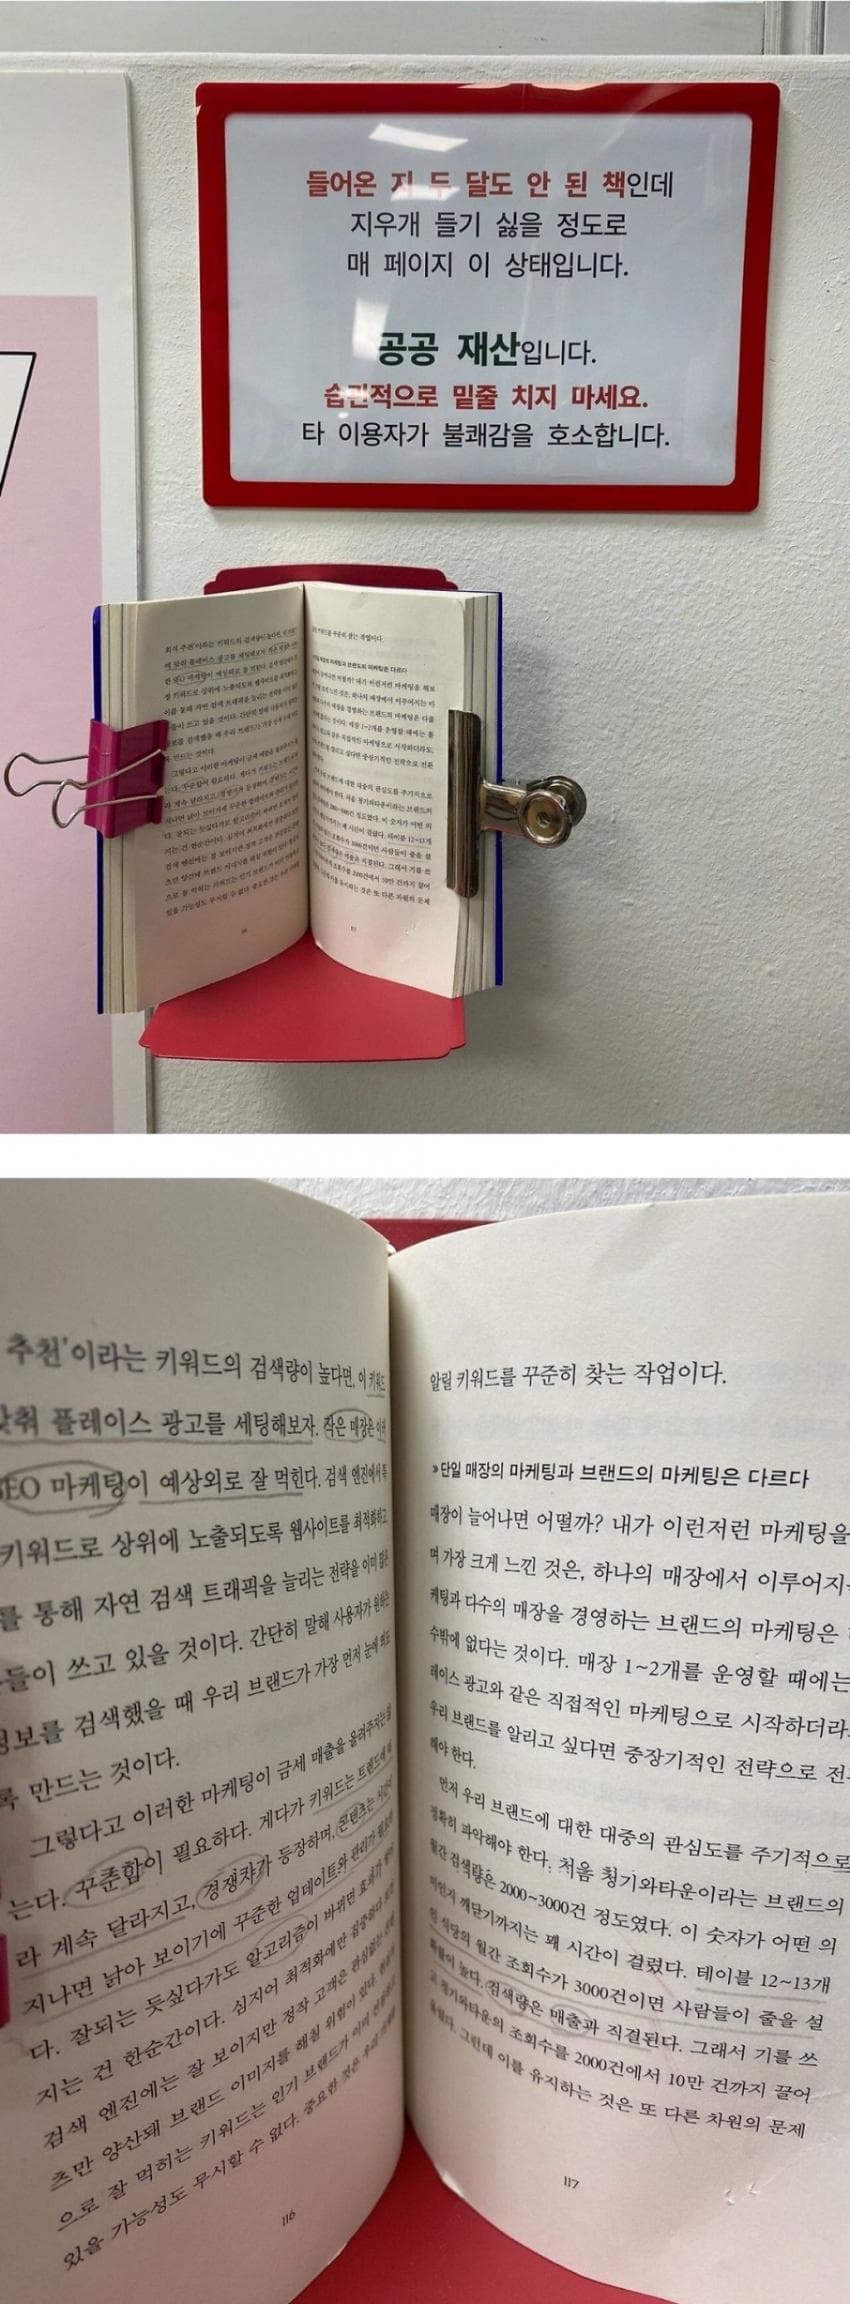 들어온 지 두 달도 안 된 책인데
지우개 들기 싫을 정도로
매 페이지 이 상태입니다.
공공 재산입니다.
습관적으로 밑줄 치지 마세요.
타 이용자가 불쾌감을 호소합니다.
추천'이라는 키워드의 검색량이 높다면, 이 키워드
맞춰 플레이스 광고를 세팅해보자. 작은 매장은
SEO 마케팅이 예상외로 잘 먹힌다. 검색 엔진에서 특
키워드로 상위에 노출되도록 웹사이트를 최적화하고
를 통해 자연 검색 트래픽을 늘리는 전략을 이미 많은
들이 쓰고 있을 것이다. 간단히 말해 사용자가 원하는
정보를 검색했을 때 우리 브랜드가 가장 먼저 눈에 띄도
록 만드는 것이다.
그렇다고 이러한 마케팅이 금세 매출을 올려주지는 않
는다. 꾸준함이 필요하다. 게다가 키워드는 트렌드에 따
라 계속 달라지고, 경쟁자가 등장하며, 콘텐츠는 시간이
지나면 낡아 보이기에 꾸준한 업데이트와 관리가 필요하
다. 잘되는 듯싶다가도 알고리즘이 바뀌면 효과가
지는 건 한순간이다. 심지어 최적화에만 집중하다 보면
검색 엔진에는 잘 보이지만 정작 고객은 관심없는
츠만 양산돼 브랜드 이미지를 해칠 위험이 있다.
으로 잘 먹히는 키워드는 인기 브랜드가 이미
있을 가능성도 무시할 수 없다. 중요한 것은 우리
116
알릴 키워드를 꾸준히 찾는 작업이다.
»단일 매장의 마케팅과 브랜드의 마케팅은 다르다
매장이 늘어나면 어떨까? 내가 이런저런 마케팅을
며 가장 크게 느낀 것은, 하나의 매장에서 이루어지는
케팅과 다수의 매장을 경영하는 브랜드의 마케팅은
수밖에 없다는 것이다. 매장 1~2개를 운영할 때에는
레이스 광고와 같은 직접적인 마케팅으로 시작하더라도
우리 브랜드를 알리고 싶다면 중장기적인 전략으로 전
해야 한다.
먼저 우리 브랜드에 대한 대중의 관심도를 주기적으로
정확히 파악해야 한다. 처음 청기와타운이라는 브랜드의
월간 검색량은 2000~3000건 정도였다. 이 숫자가 어떤 의
미인지 깨닫기까지는 꽤 시간이 걸렸다. 테이블 12~13개
인 식당의 월간 조회수가 3000건이면 사람들이 줄을 설
확률이 높다. 검색량은 매출과 직결된다. 그래서 기를 쓰
고 청기와타운의 조회수를 2000건에서 10만 건까지 끌어
올렸다. 그런데 이를 유지하는 것은 또 다른 차원의 문제
117